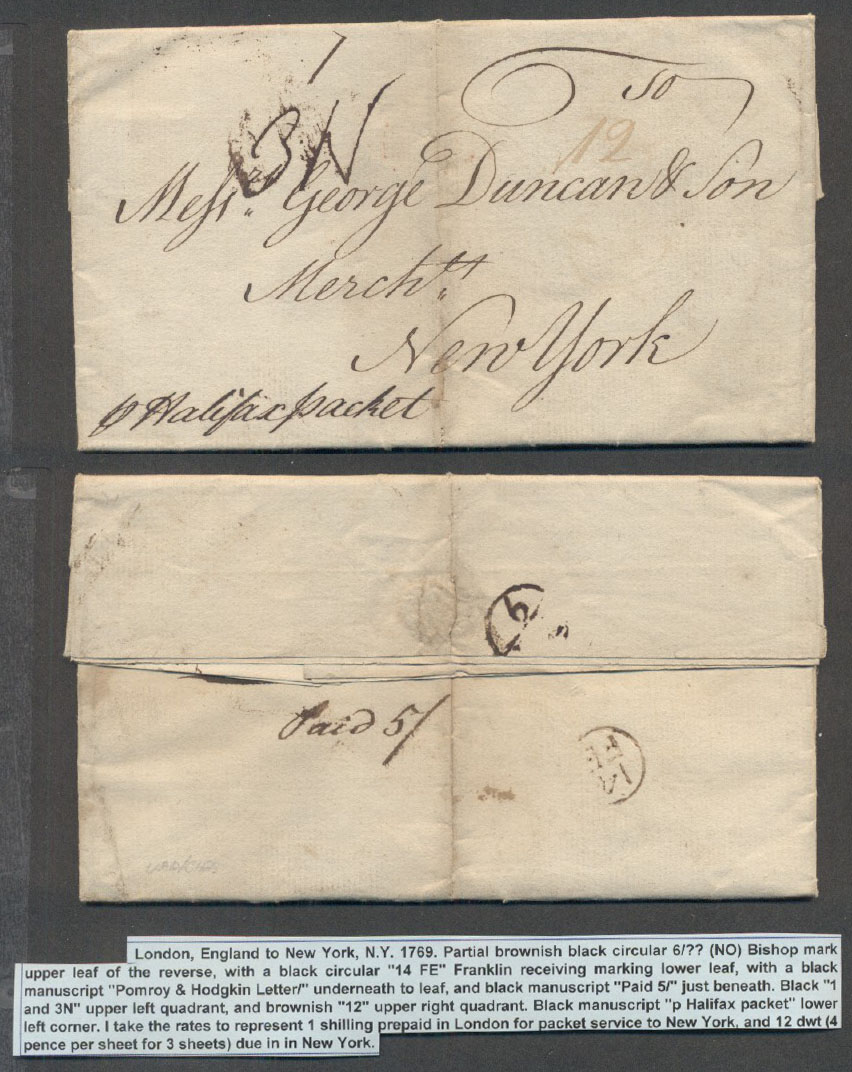 1
To
3N
12
Messrs. George Duncan & Son
Mercht.
New York
p Halifax packet
Paid 5/
14
FE
London, England to New York, N.Y. 1769. Partial brownish black circular 6/?? (NO) Bishop mark
upper leaf of the reverse, with a black circular "14 FE" Franklin receiving marking lower leaf, with a black
manuscript "Pomroy & Hodgkin Letter/" underneath to leaf, and black manuscript "Paid 5/" just beneath. Black "1
and 3N" upper left quadrant, and brownish "12" upper right quadrant. Black manuscript "p Halifax packet" lower
left corner. I take the rates to represent 1 shilling prepaid in London for packet service to New York, and 12 dwt (4
pence per sheet for 3 sheets) due in in New York.